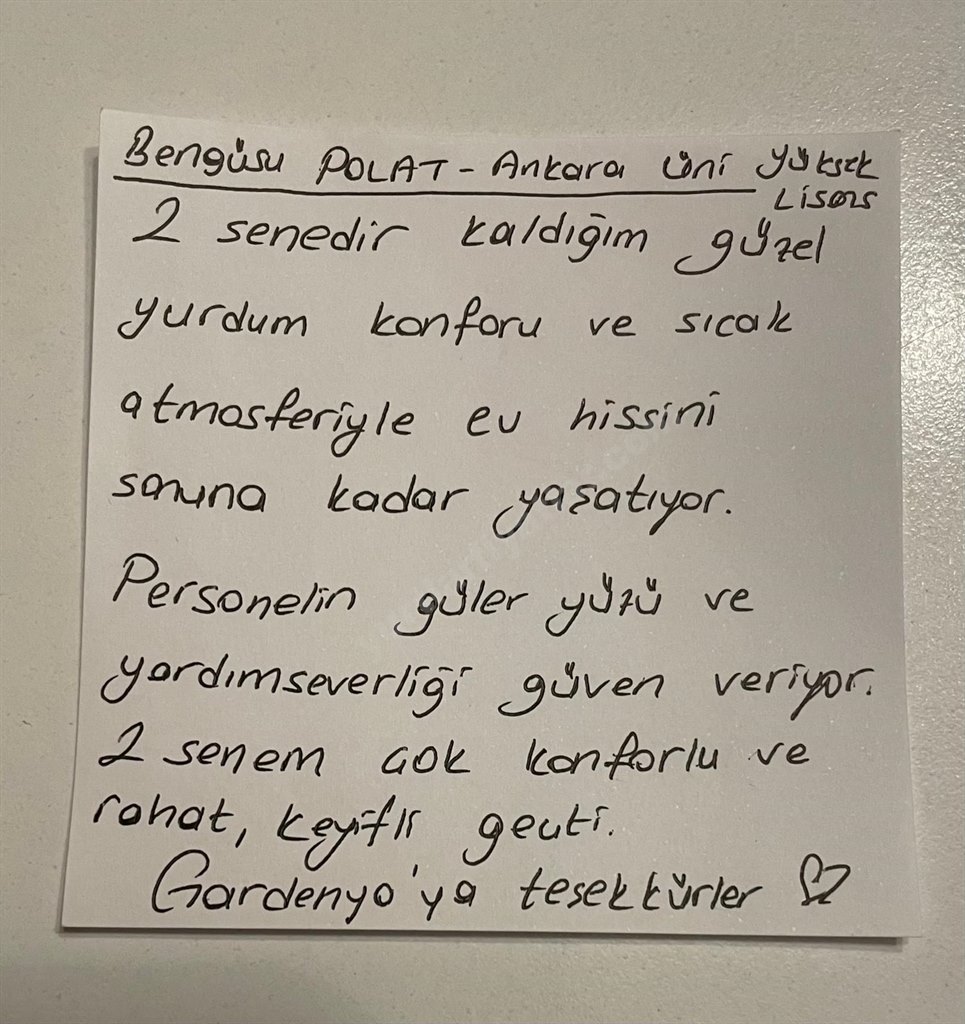 Bengüsu POLAT - Ankara üni Yüksek
Lisans
2 senedir kaldığım güzel
yurdum konforu ve sıcak
atmosferiyle ev hissini
sonuna kadar yaşatıyor.
Personelin güler yüzü ve
yardımseverliği güven veriyor.
2 senem çok konforlu ve
rahat, keyifli geçti.
Gardenya'ya teşekkürler ♡